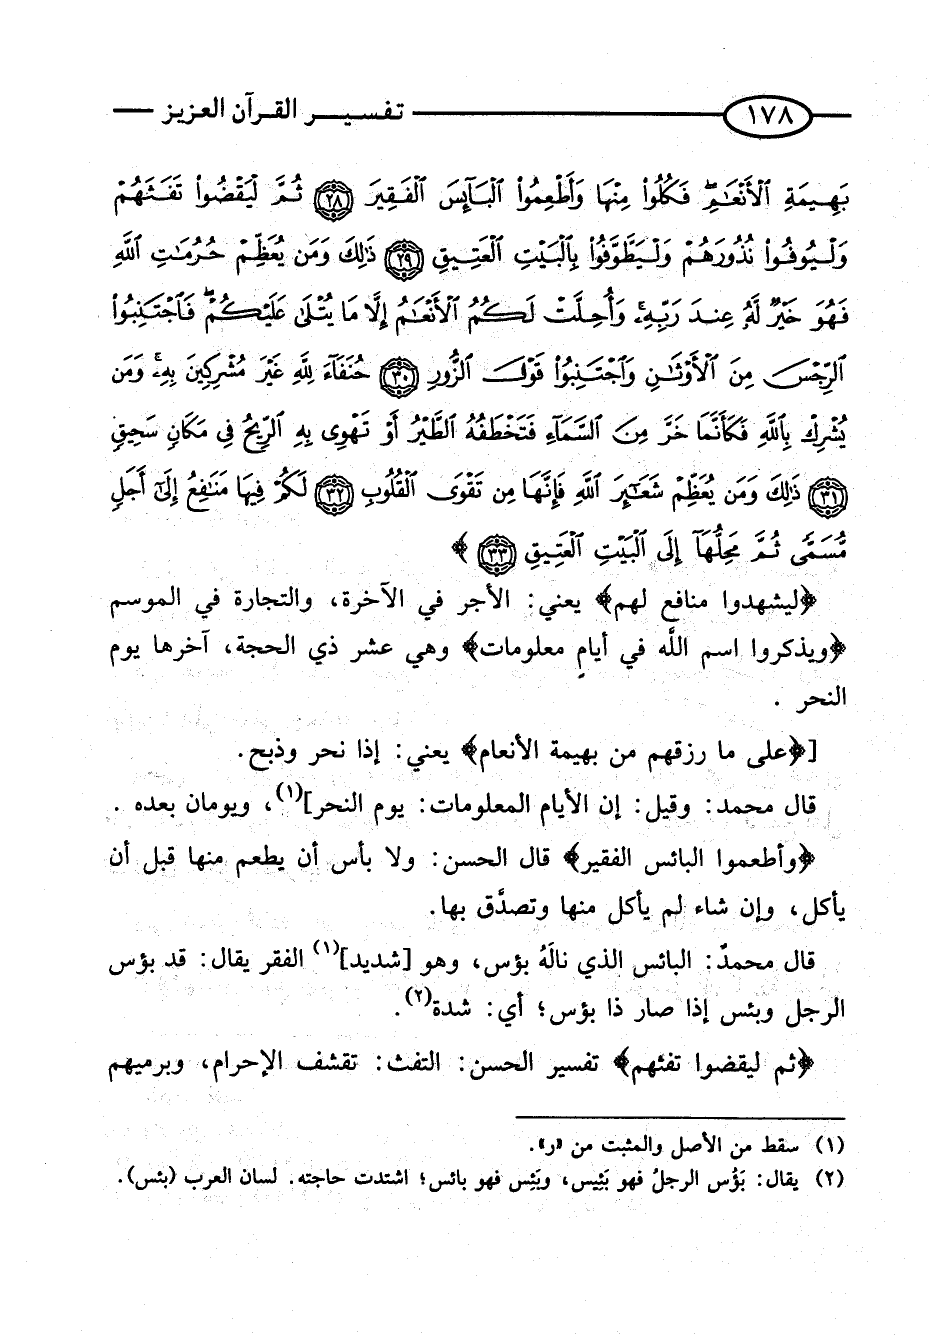 ١٧٨ تفسير القرآن العزيز
بَهِيمَةِ ٱلْأَنْعَٰمِۖ فَكُلُوا۟ مِنْهَا وَأَطْعِمُوا۟ ٱلْبَآئِسَ ٱلْفَقِيرَ ٢٨ ثُمَّ لْيَقْضُوا۟ تَفَثَهُمْ
وَلْيُوفُوا۟ نُذُورَهُمْ وَلْيَطَّوَّفُوا۟ بِٱلْبَيْتِ ٱلْعَتِيقِ ٢٩ ذَٰلِكَ وَمَن يُعَظِّمْ حُرُمَٰتِ ٱللَّهِ
فَهُوَ خَيْرٌ لَّهُۥ عِندَ رَبِّهِۦۗ وَأُحِلَّتْ لَكُمُ ٱلْأَنْعَٰمُ إِلَّا مَا يُتْلَىٰ عَلَيْكُمْۖ فَٱجْتَنِبُوا۟
ٱلرِّجْسَ مِنَ ٱلْأَوْثَٰنِ وَٱجْتَنِبُوا۟ قَوْلَ ٱلزُّورِ ٣٠ حُنَفَآءَ لِلَّهِ غَيْرَ مُشْرِكِينَ بِهِۦۚ وَمَن
يُشْرِكْ بِٱللَّهِ فَكَأَنَّمَا خَرَّ مِنَ ٱلسَّمَآءِ فَتَخْطَفُهُ ٱلطَّيْرُ أَوْ تَهْوِى بِهِ ٱلرِّيحُ فِى مَكَانٍ سَحِيقٍ
٣١ ذَٰلِكَ وَمَن يُعَظِّمْ شَعَٰٓئِرَ ٱللَّهِ فَإِنَّهَا مِن تَقْوَى ٱلْقُلُوبِ ٣٢ لَكُمْ فِيهَا مَنَٰفِعُ إِلَىٰٓ أَجَلٍ
مُّسَمًّى ثُمَّ مَحِلُّهَآ إِلَى ٱلْبَيْتِ ٱلْعَتِيقِ ٣٣ ﴾
﴿ليشهدوا منافع لهم﴾ يعني: الأجر في الآخرة، والتجارة في الموسم
﴿ويذكروا اسم اللَّه في أيامٍ معلومات﴾ وهي عشر ذي الحجة، آخرها يوم
النحر .
[﴿على ما رزقهم من بهيمة الأنعام﴾ يعني: إذا نحر وذبح.
قال محمد: وقيل: إن الأيام المعلومات: يوم النحر](١)، ويومان بعده .
﴿وأطعموا البائس الفقير﴾ قال الحسن: ولا بأس أن يطعم منها قبل أن
يأكل، وإن شاء لم يأكل منها وتصدَّق بها.
قال محمدٌ: البائس الذي نالَهُ بؤس، وهو [شديد](١) الفقر يقال: قد بؤس
الرجل وبئس إذا صار ذا بؤس؛ أي: شدة(٢).
﴿ثم ليقضوا تفثهم﴾ تفسير الحسن: التفث: تقشف الإحرام، وبرميهم
(١) سقط من الأصل والمثبت من «ر».
(٢) يقال: بَؤُس الرجلُ فهو بَئِيس، وبَئِس فهو بائس؛ اشتدت حاجته. لسان العرب (بئس).